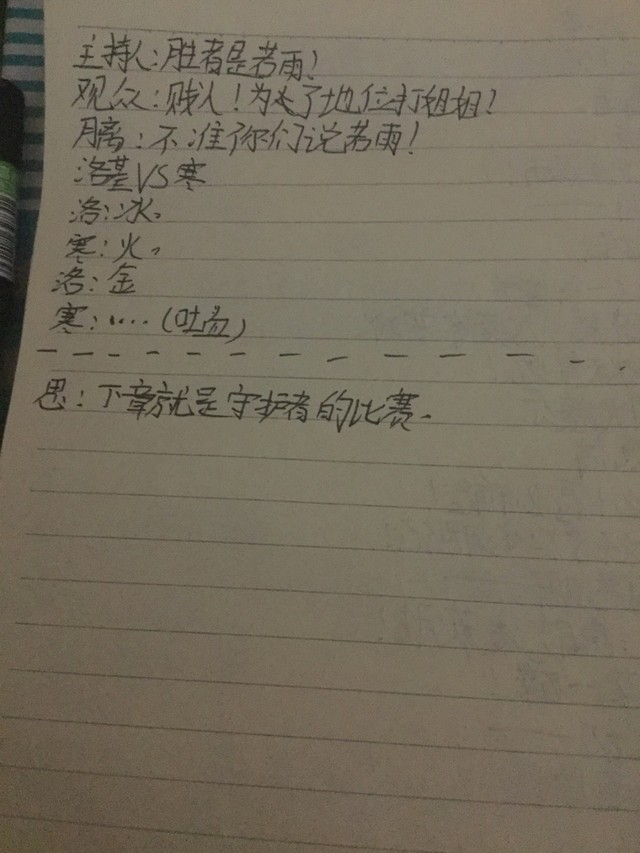 主持人：胜者是若雨！
观众：贱人！为了地位打姐姐！
月离：不准你们说若雨！
洛基VS寒
洛：冰。
寒：火。
洛：金
寒：……（吐血）
思：下章就是守护者的比赛。